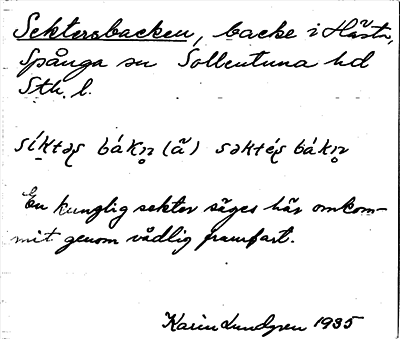 Sektersbacken, backe i Hästa,
Spånga sn Sollentuna hd
Sth. l.
síktəs bákn̥ (ã) səktés bákn̥
En kunglig sekter säges här omkom-
mit genom vådlig framfart.
Karin Lundgren 1935